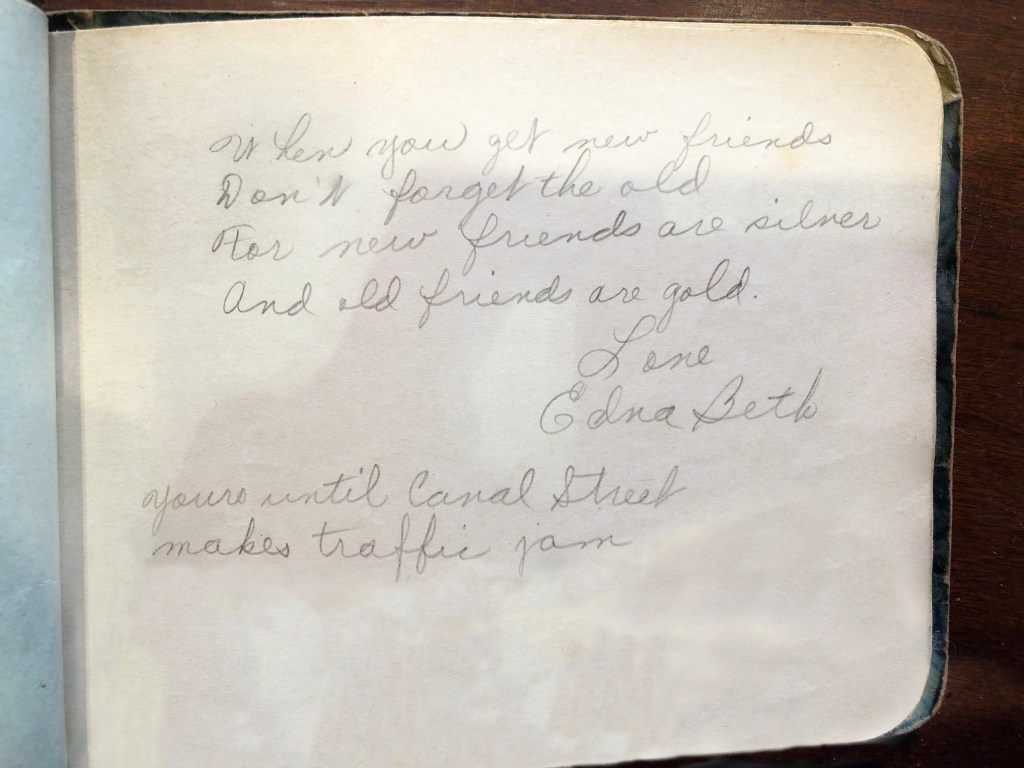 When you get new friends
Don't forget the old
For new friends are silver
And old friends are gold.
Love
Edna Beth
yours until Canal Street
makes traffic jam